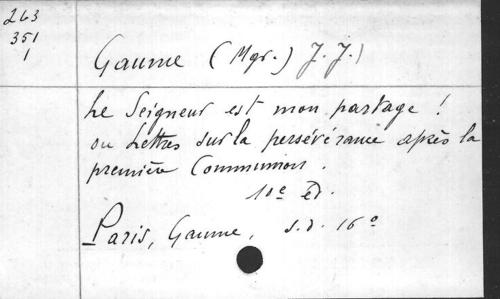 263
351
1
Gaume (Mgr.) J. J.)
Le Seigneur est mon partage !
ou Lettres sur la persévérance après la
première Communion.
10e éd.
Paris, Gaume, s.d. 16°